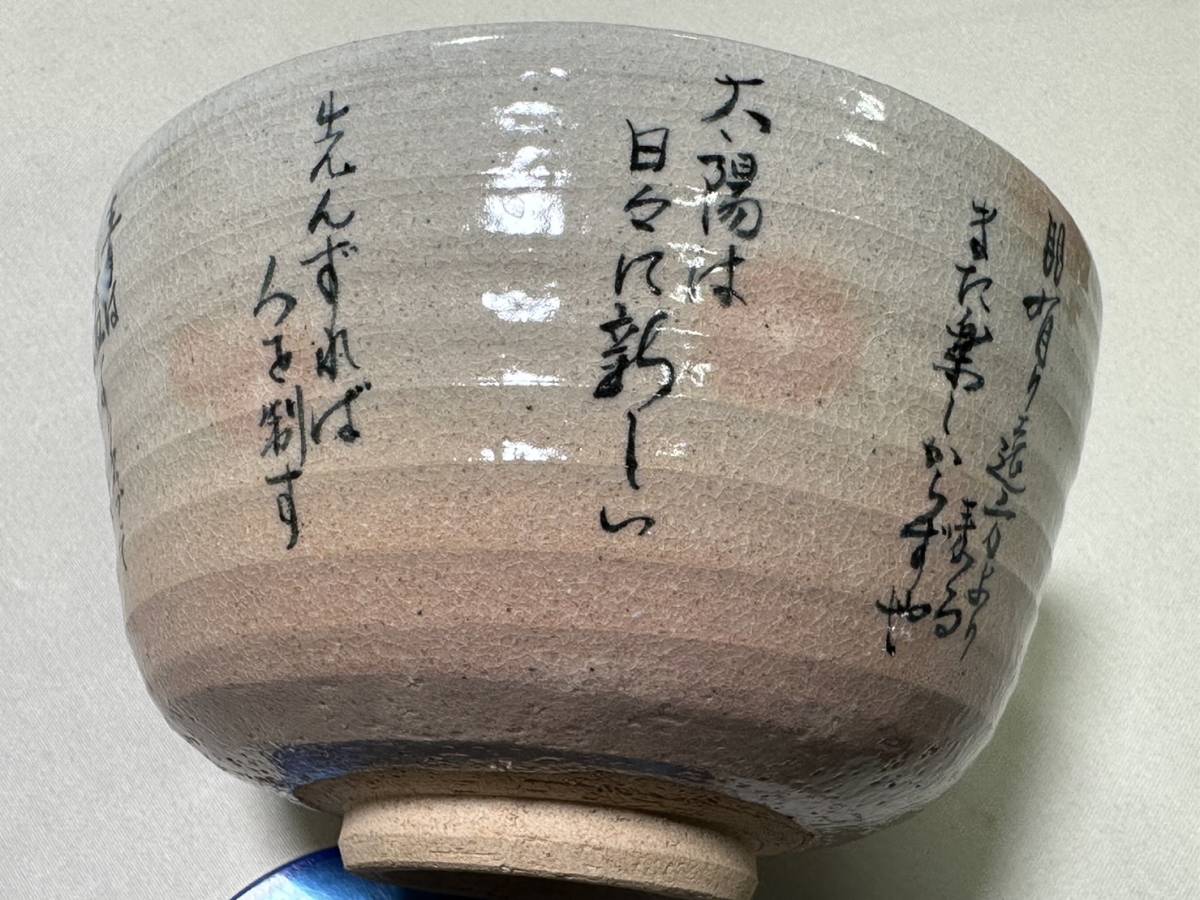 朋有り遠方より
来る
また楽しからずや
太陽は
日々に新しい
先んずれば
人を制す